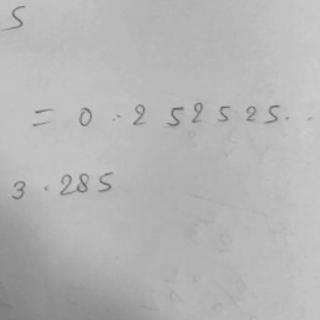 S
= 0.252525..
3.285